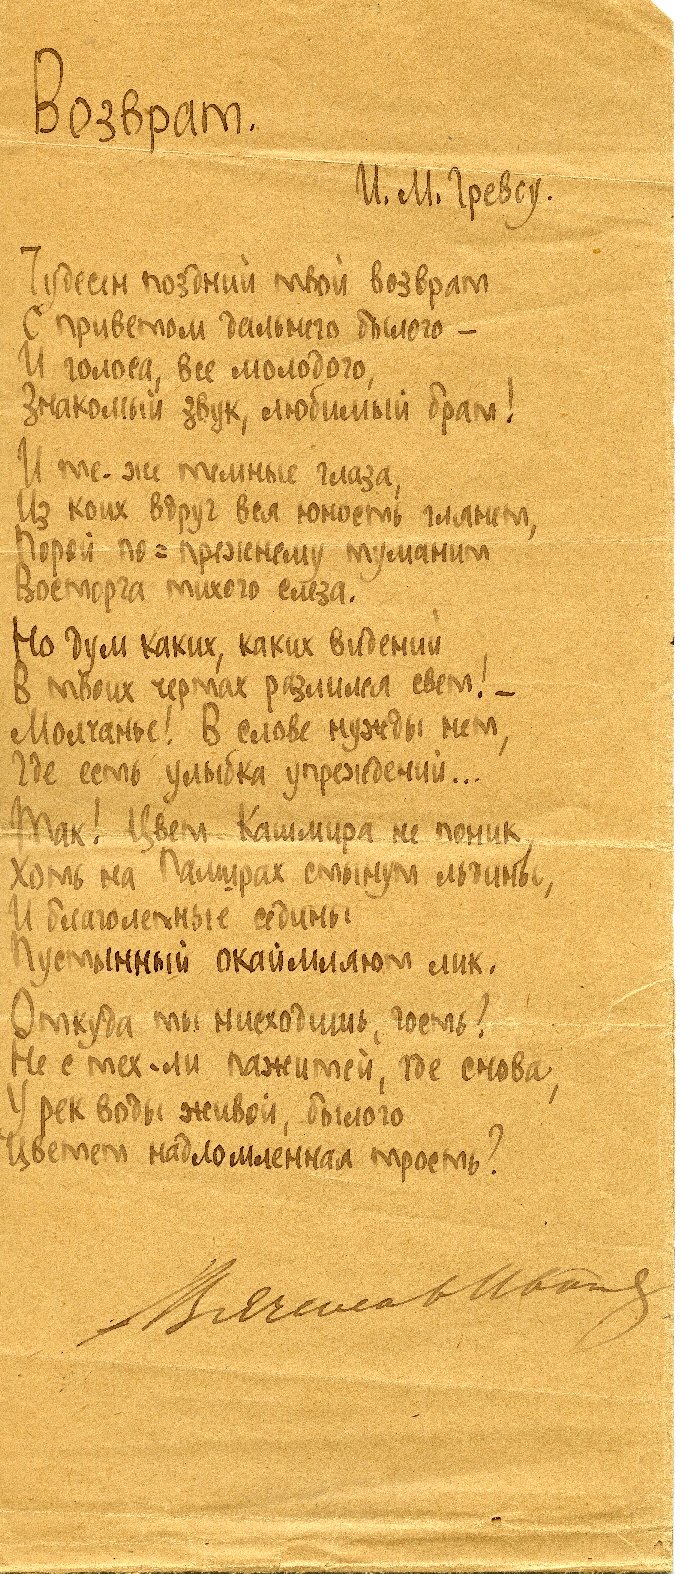 Возврат.
И. М. Гревсу.
Чудесен поздний твой возврат
С приветом дальнего былого –
И голоса, все молодого,
Знакомый звук, любимый брат!
И те-же темные глаза,
Из коих вдруг вся юность глянет,
Порой по=прежнему туманит
Восторга тихого слеза.
Но дум каких, каких видений
В твоих чертах разлился свет! –
Молчанье! В слове нужды нет,
Где есть улыбка упреждений...
Так! Цвет Кашмира не поник,
Хоть на Памирах стынут льдины,
И благолепные седины
Пустынный окаймляют лик.
Откуда ты нисходишь, гость?
Не с тех-ли пажитей, где снова,
У рек воды живой, былого
Цветет надломленная трость?
Вячеслав Иванов